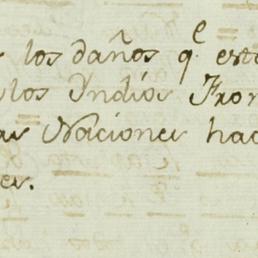 los daños q.e est
los Yndios Fron
as Naciones hac
es.